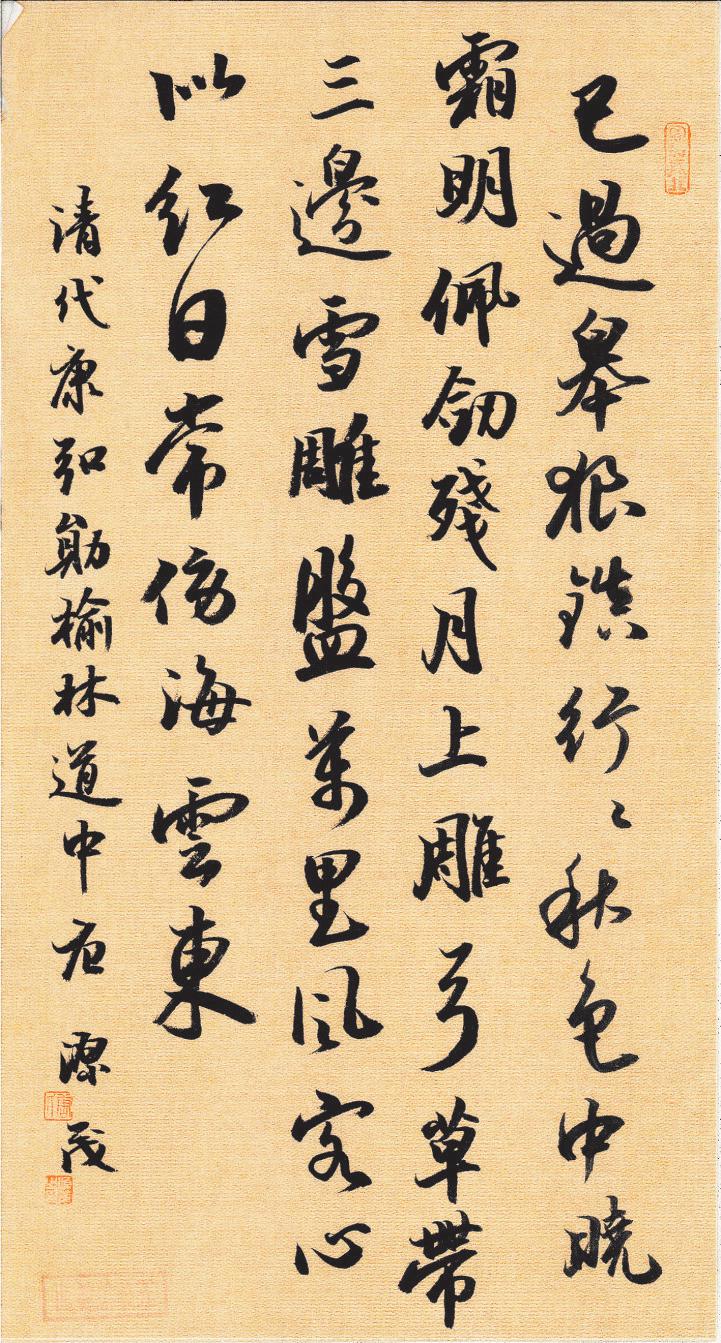 已過皋狼鎮行〻秋色中曉
霜明佩劒殘月上雕弓草帶
三邊雪雕盤萬里风客心
似紅日常傍海雲東
清代康弘勛榆林道中